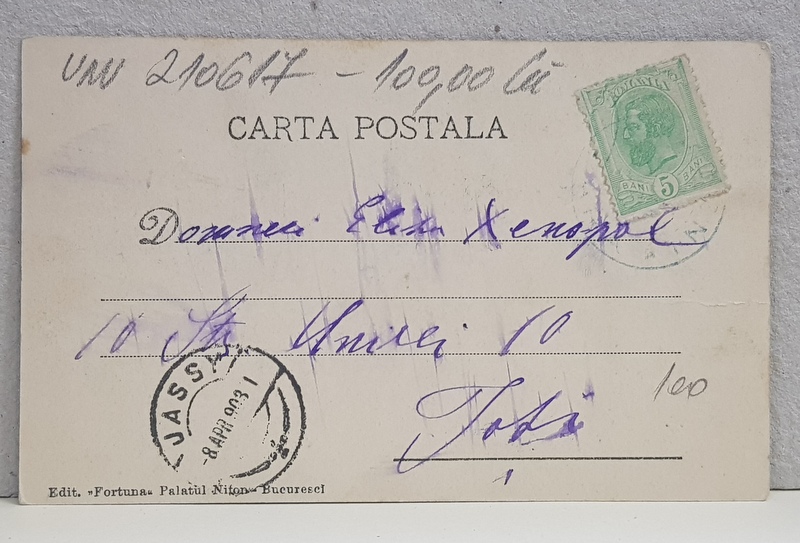 UNV 210617 - 100,00 lei
CARTA POSTALA
ROMANIA
BANI 5 BANI
Domnei Elisa Xenopol
10 Str Unirei 10
Iași
100
JASSY
-8.APR 903 1
Edit. "Fortuna" Palatul Nifon - Bucuresci